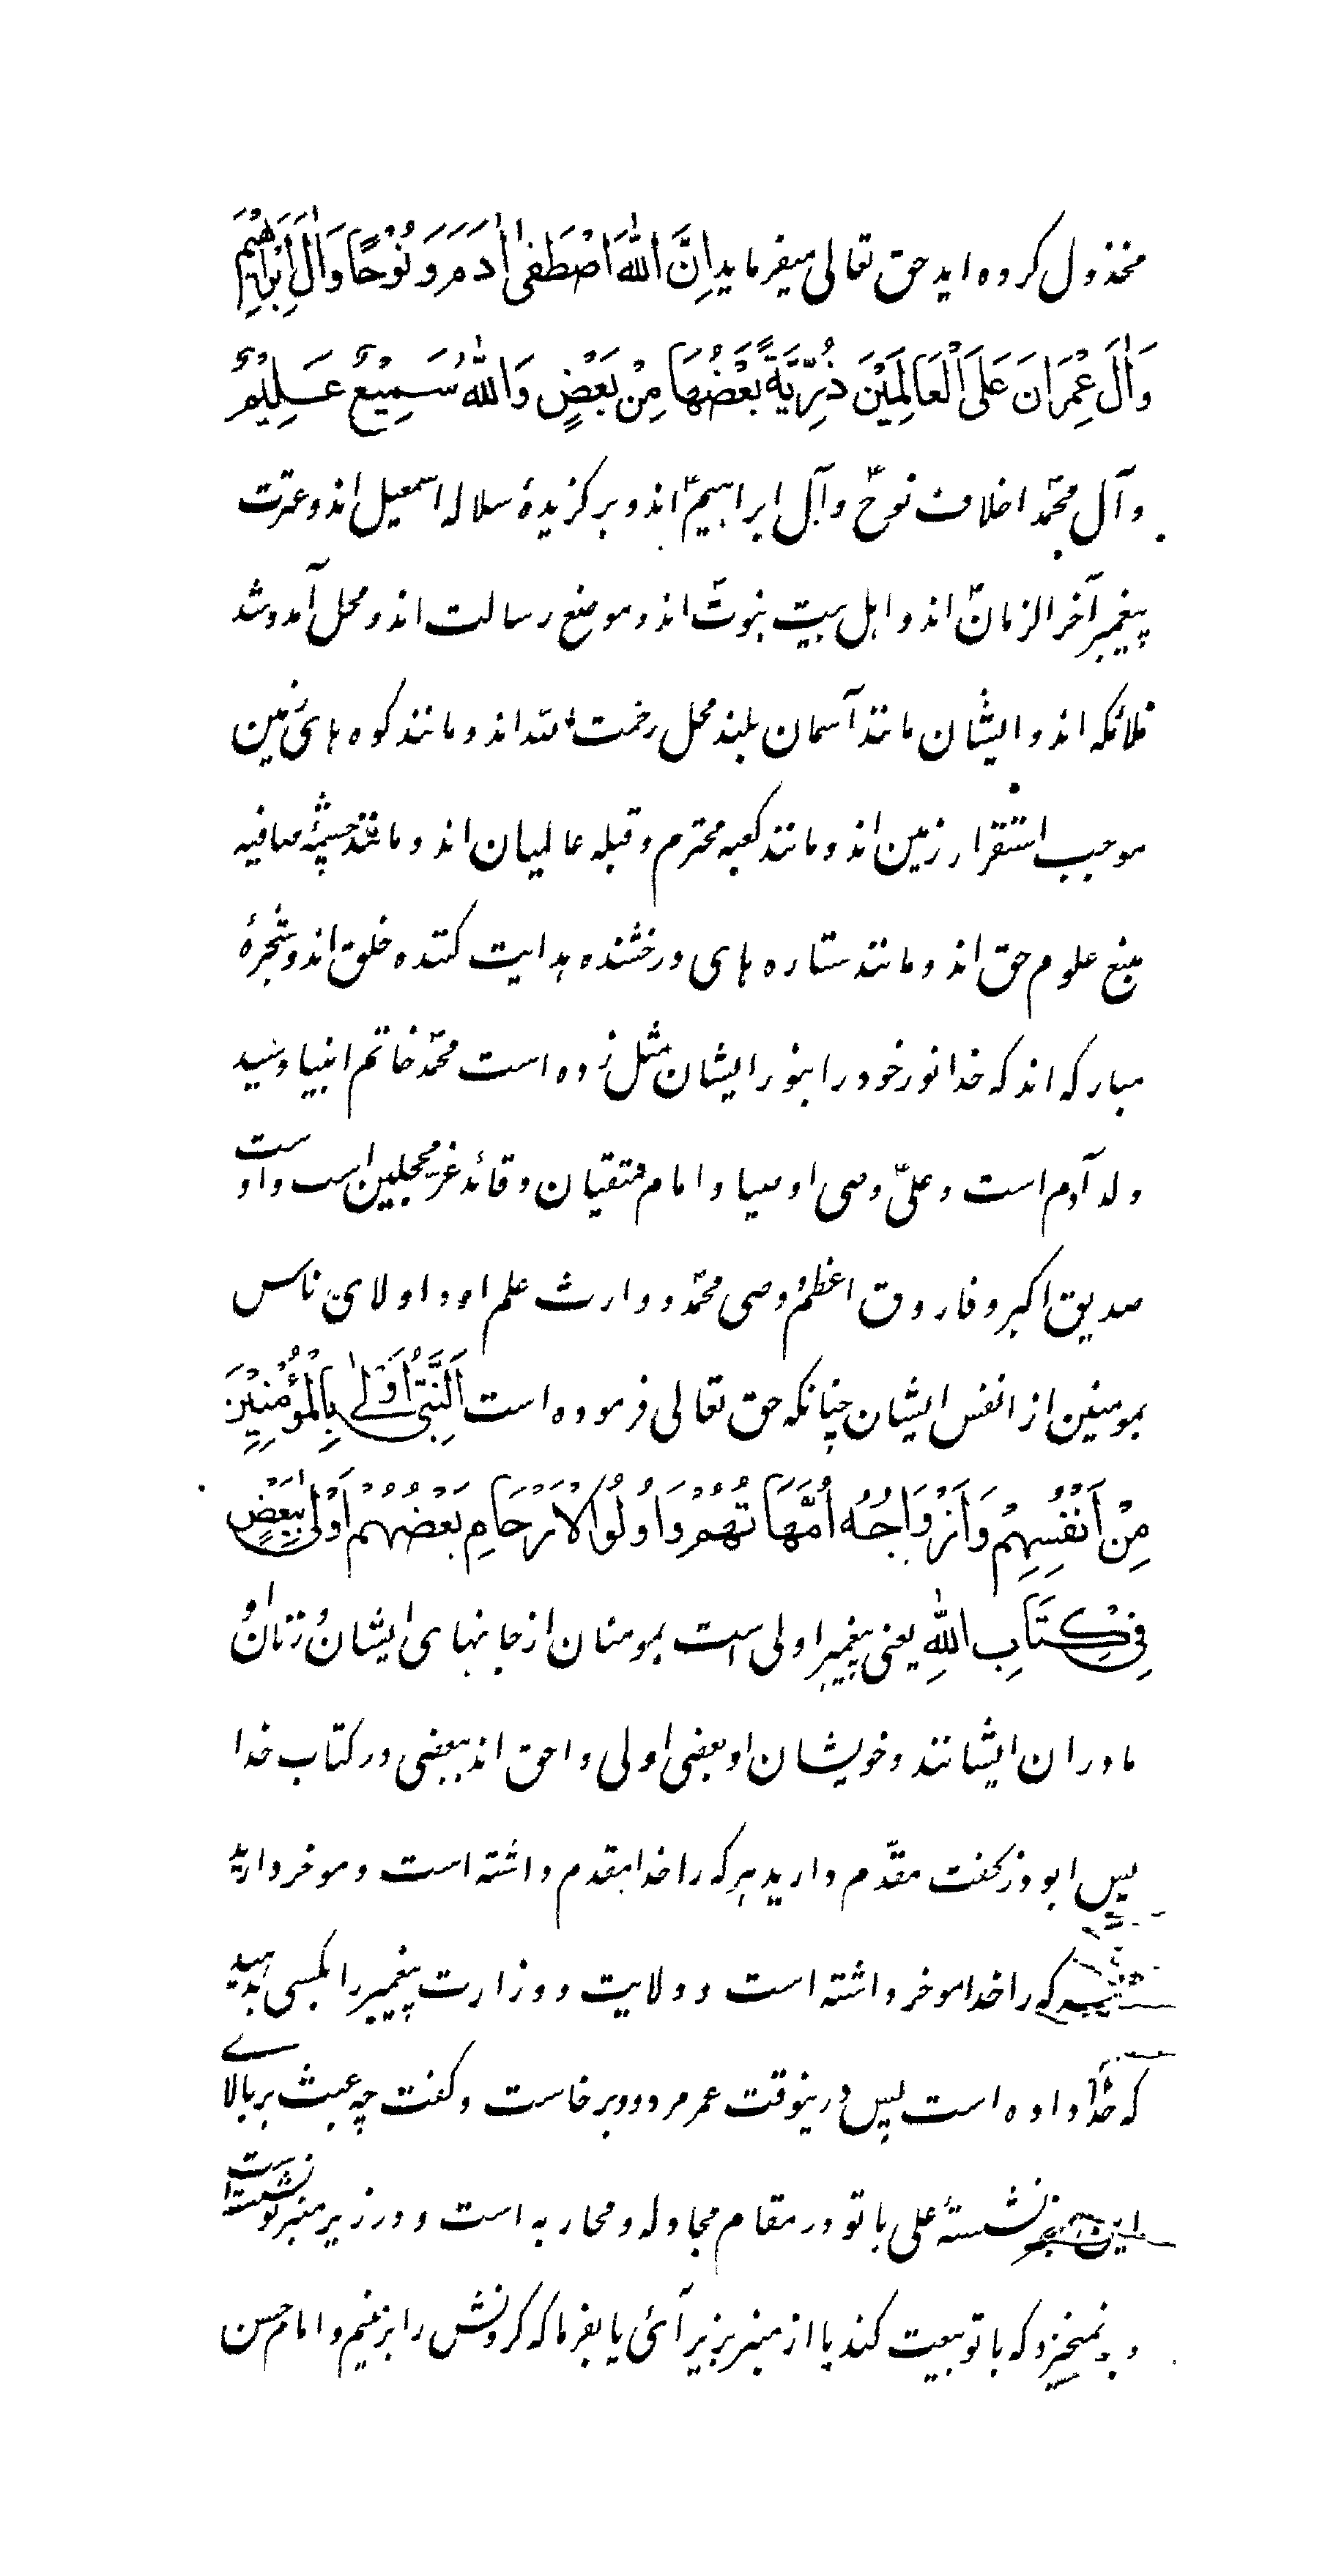 مخذول کرده اید حق تعالی میفرماید اِنَّ اللّٰهَ اصْطَفٰی اٰدَمَ وَ نُوْحًا وَ اٰلَ اِبْرَاهِیْمَ
وَ اٰلَ عِمْرَانَ عَلَی الْعَالَمِیْنَ ذُرِّیَّةً بَعْضُهَا مِنْ بَعْضٍ وَ اللّٰهُ سَمِیْعٌ عَلِیْمٌ
و آل محمّد اخلاف نوحؑ و آل ابراہیمؑ اند و برگزیدۂ سلالہ اسمعیل اند و عترت
پیغمبر آخر الزمانؐ اند و اہل بیت نبوّت اند و موضع رسالت اند و محل آمد و شد
ملائکہ اند و ایشان مانند آسمان بلند محل رحمت اللہ اند و مانند کوہ ہای زمین
موجب استقرار زمین اند و مانند کعبہ محترم و قبلہ عالمیان اند و مانند چشمۂ صافیہ
منبع علوم حق اند و مانند ستارہ ہای درخشندہ ہدایت کنندہ خلق اند و شجرۂ
مبارکہ اند کہ خدا نور خود را بنور ایشان مثل زدہ است محمّد خاتم انبیا و سید
ولد آدم است و علیؑ وصی اوصیا و امام متقیان و قائد غر محجلین است و اوست
صدیق اکبر و فاروق اعظم و وصی محمّد و وارث علم او و اولای ناس
بمومنین از انفس ایشان چنانکہ حق تعالی فرمودہ است اَلنَّبِیُّ اَوْلٰی بِالْمُؤْمِنِیْنَ
مِنْ اَنْفُسِهِمْ وَ اَزْوَاجُهُ اُمَّهَاتُهُمْ وَ اُولُوا الْاَرْحَامِ بَعْضُهُمْ اَوْلٰی بِبَعْضٍ
فِیْ کِتَابِ اللّٰهِ یعنی پیغمبر اولی است بمومنان از جانہای ایشان و زنان او
مادران ایشانند و خویشان او بعضی اولی و احق اند ببعضی در کتاب خدا
پس ابوذر گفت مقدّم دارید ہر کہ را خدا مقدم داشتہ است و موخر دارید
ہر کہ را خدا موخر داشتہ است و ولایت و وزارت پیغمبر را بکسی بدہید
کہ خدا دادہ است پس درینوقت عمر مردود برخاست و گفت چہ عبث بر بالای
این منبر نشستۂ علی با تو در مقام مجادلہ و محاربہ است و در زیر منبر تو نشستہ است
و برنمیخیزد کہ با تو بیعت کند یا از منبر بزیر آئی یا بفرما کہ گردنش را بزنیم و امام حسن